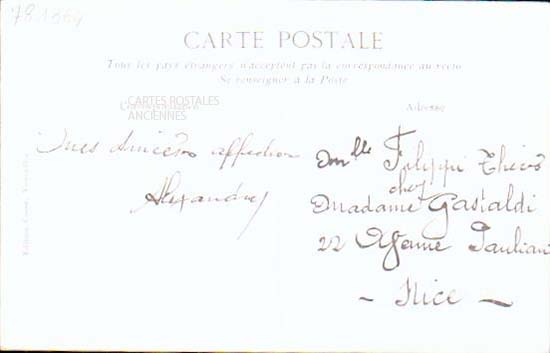 CARTE POSTALE
Tous les pays étrangers n'acceptent pas la correspondance au recto
Se renseigner à la Poste
CARTES POSTALES
ANCIENNES
Correspondance
Adresse
sincères affection
Alexandre
Mlle Filippi
chez
Madame Gastaldi
22 Avenue Pauliani
- Nice -